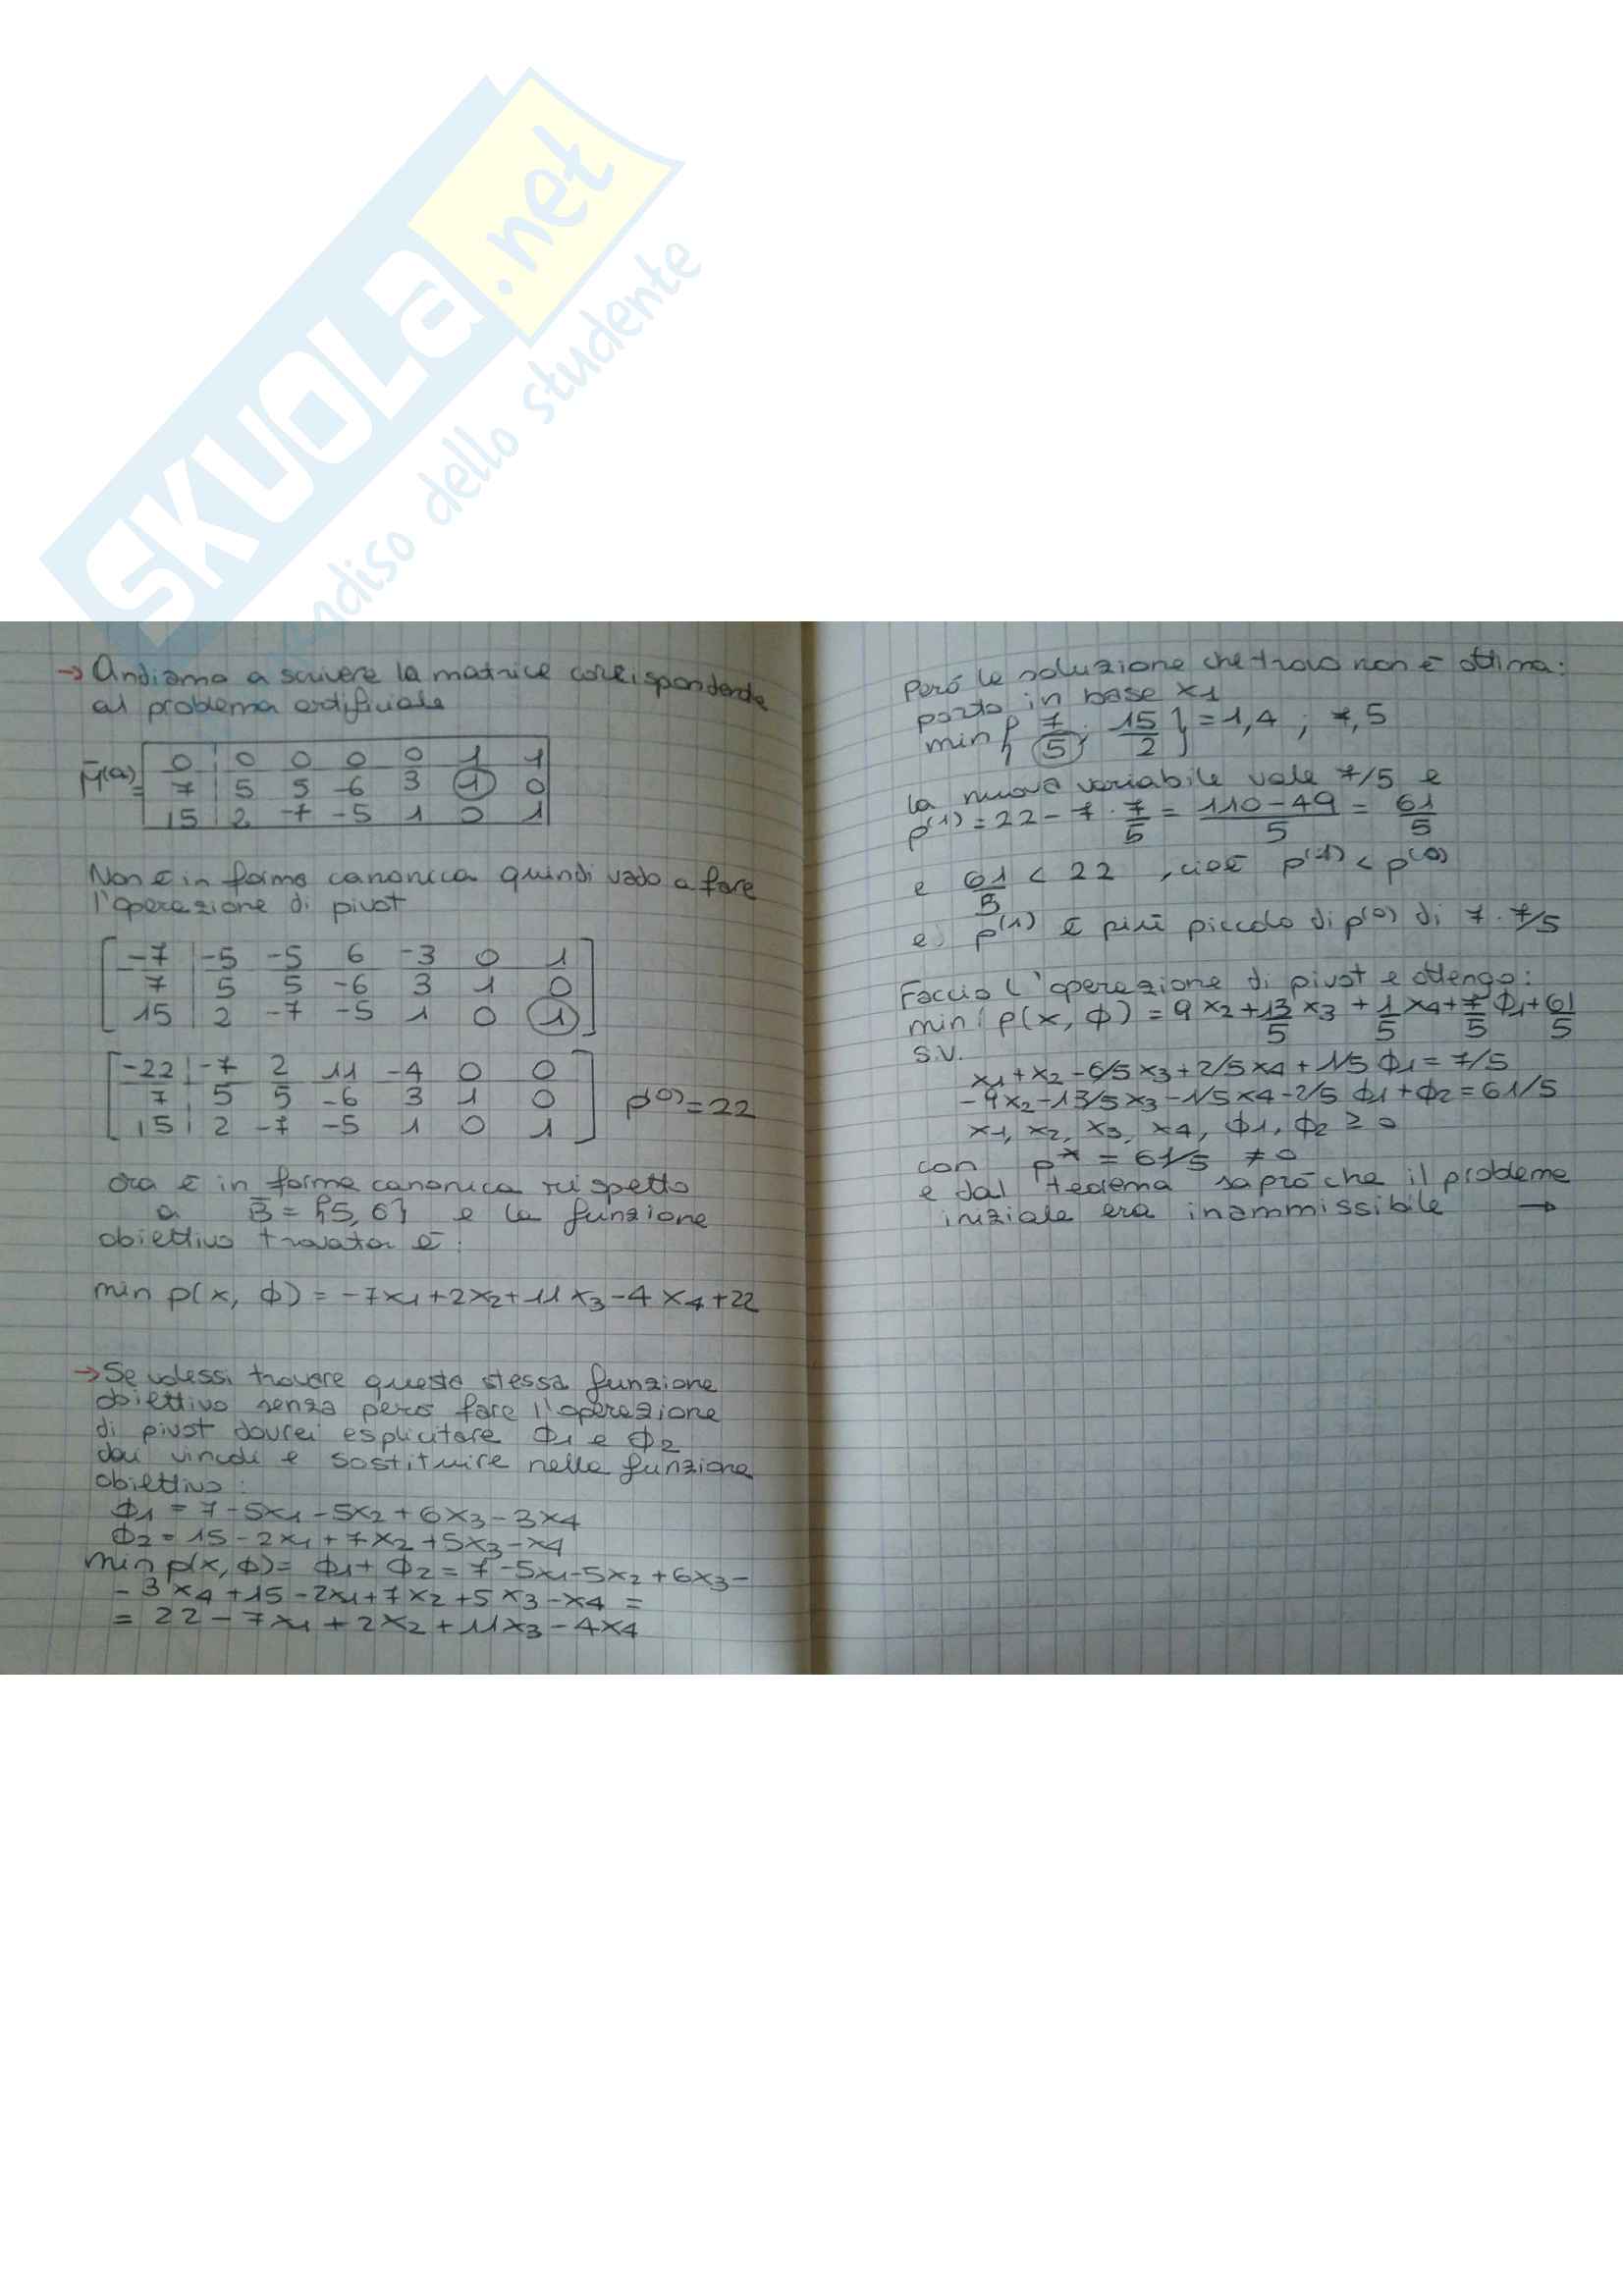 SKUOLA.net
dello studente
→ Andiamo a scrivere la matrice corrispondente
al problema artificiale
M̄(a)=
0 0 0 0 0 1 1
7 5 5 -6 3 1 0
15 2 -7 -5 1 0 1
Non è in forma canonica quindi vado a fare
l'operazione di pivot
-7 -5 -5 6 -3 0 1
7 5 5 -6 3 1 0
15 2 -7 -5 1 0 1
-22 -7 2 11 -4 0 0
7 5 5 -6 3 1 0 p(0)=22
15 2 -7 -5 1 0 1
ora è in forma canonica rispetto
a B̄ = {5, 6} e la funzione
obiettivo trovata è:
min p(x, ϕ) = -7x1+2x2+11x3-4x4+22
→ Se volessi trovare questa stessa funzione
obiettivo senza però fare l'operazione
di pivot dovrei esplicitare ϕ1 e ϕ2
dai vincoli e sostituire nella funzione
obiettivo:
ϕ1 = 7-5x1-5x2+6x3-3x4
ϕ2 = 15-2x1+7x2+5x3-x4
min p(x, ϕ)= ϕ1+ ϕ2 = 7-5x1-5x2+6x3-
-3x4+15-2x1+7x2+5x3-x4 =
= 22-7x1+2x2+11x3-4x4
Però la soluzione che trovo non è ottima:
porto in base x1
min { 7/5 ; 15/2 } = 1,4 ; 7,5
la nuova variabile vale 7/5 e
p(1) = 22-7·7/5 = 110-49/5 = 61/5
e 61/5 < 22 , cioè p(1) < p(0)
e p(1) è più piccolo di p(0) di 7·7/5
Faccio l'operazione di pivot e ottengo:
min p(x, ϕ) = 9x2+13/5 x3 + 1/5 x4+7/5 ϕ1+61/5
s.v.
x1+x2-6/5x3+2/5x4+1/5 ϕ1 = 7/5
-9x2-13/5x3-1/5x4-2/5 ϕ1+ϕ2=61/5
x1, x2, x3, x4, ϕ1, ϕ2 ≥ 0
con p* = 61/5 ≠ 0
e dal teorema saprò che il problema
iniziale era inammissibile →